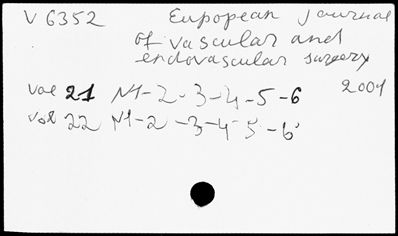 V 6352 European Journal
of vascular and
endovascular surgery
Vol 21 N1-2-3-4-5-6 2001
Vol 22 N1-2-3-4-5-6